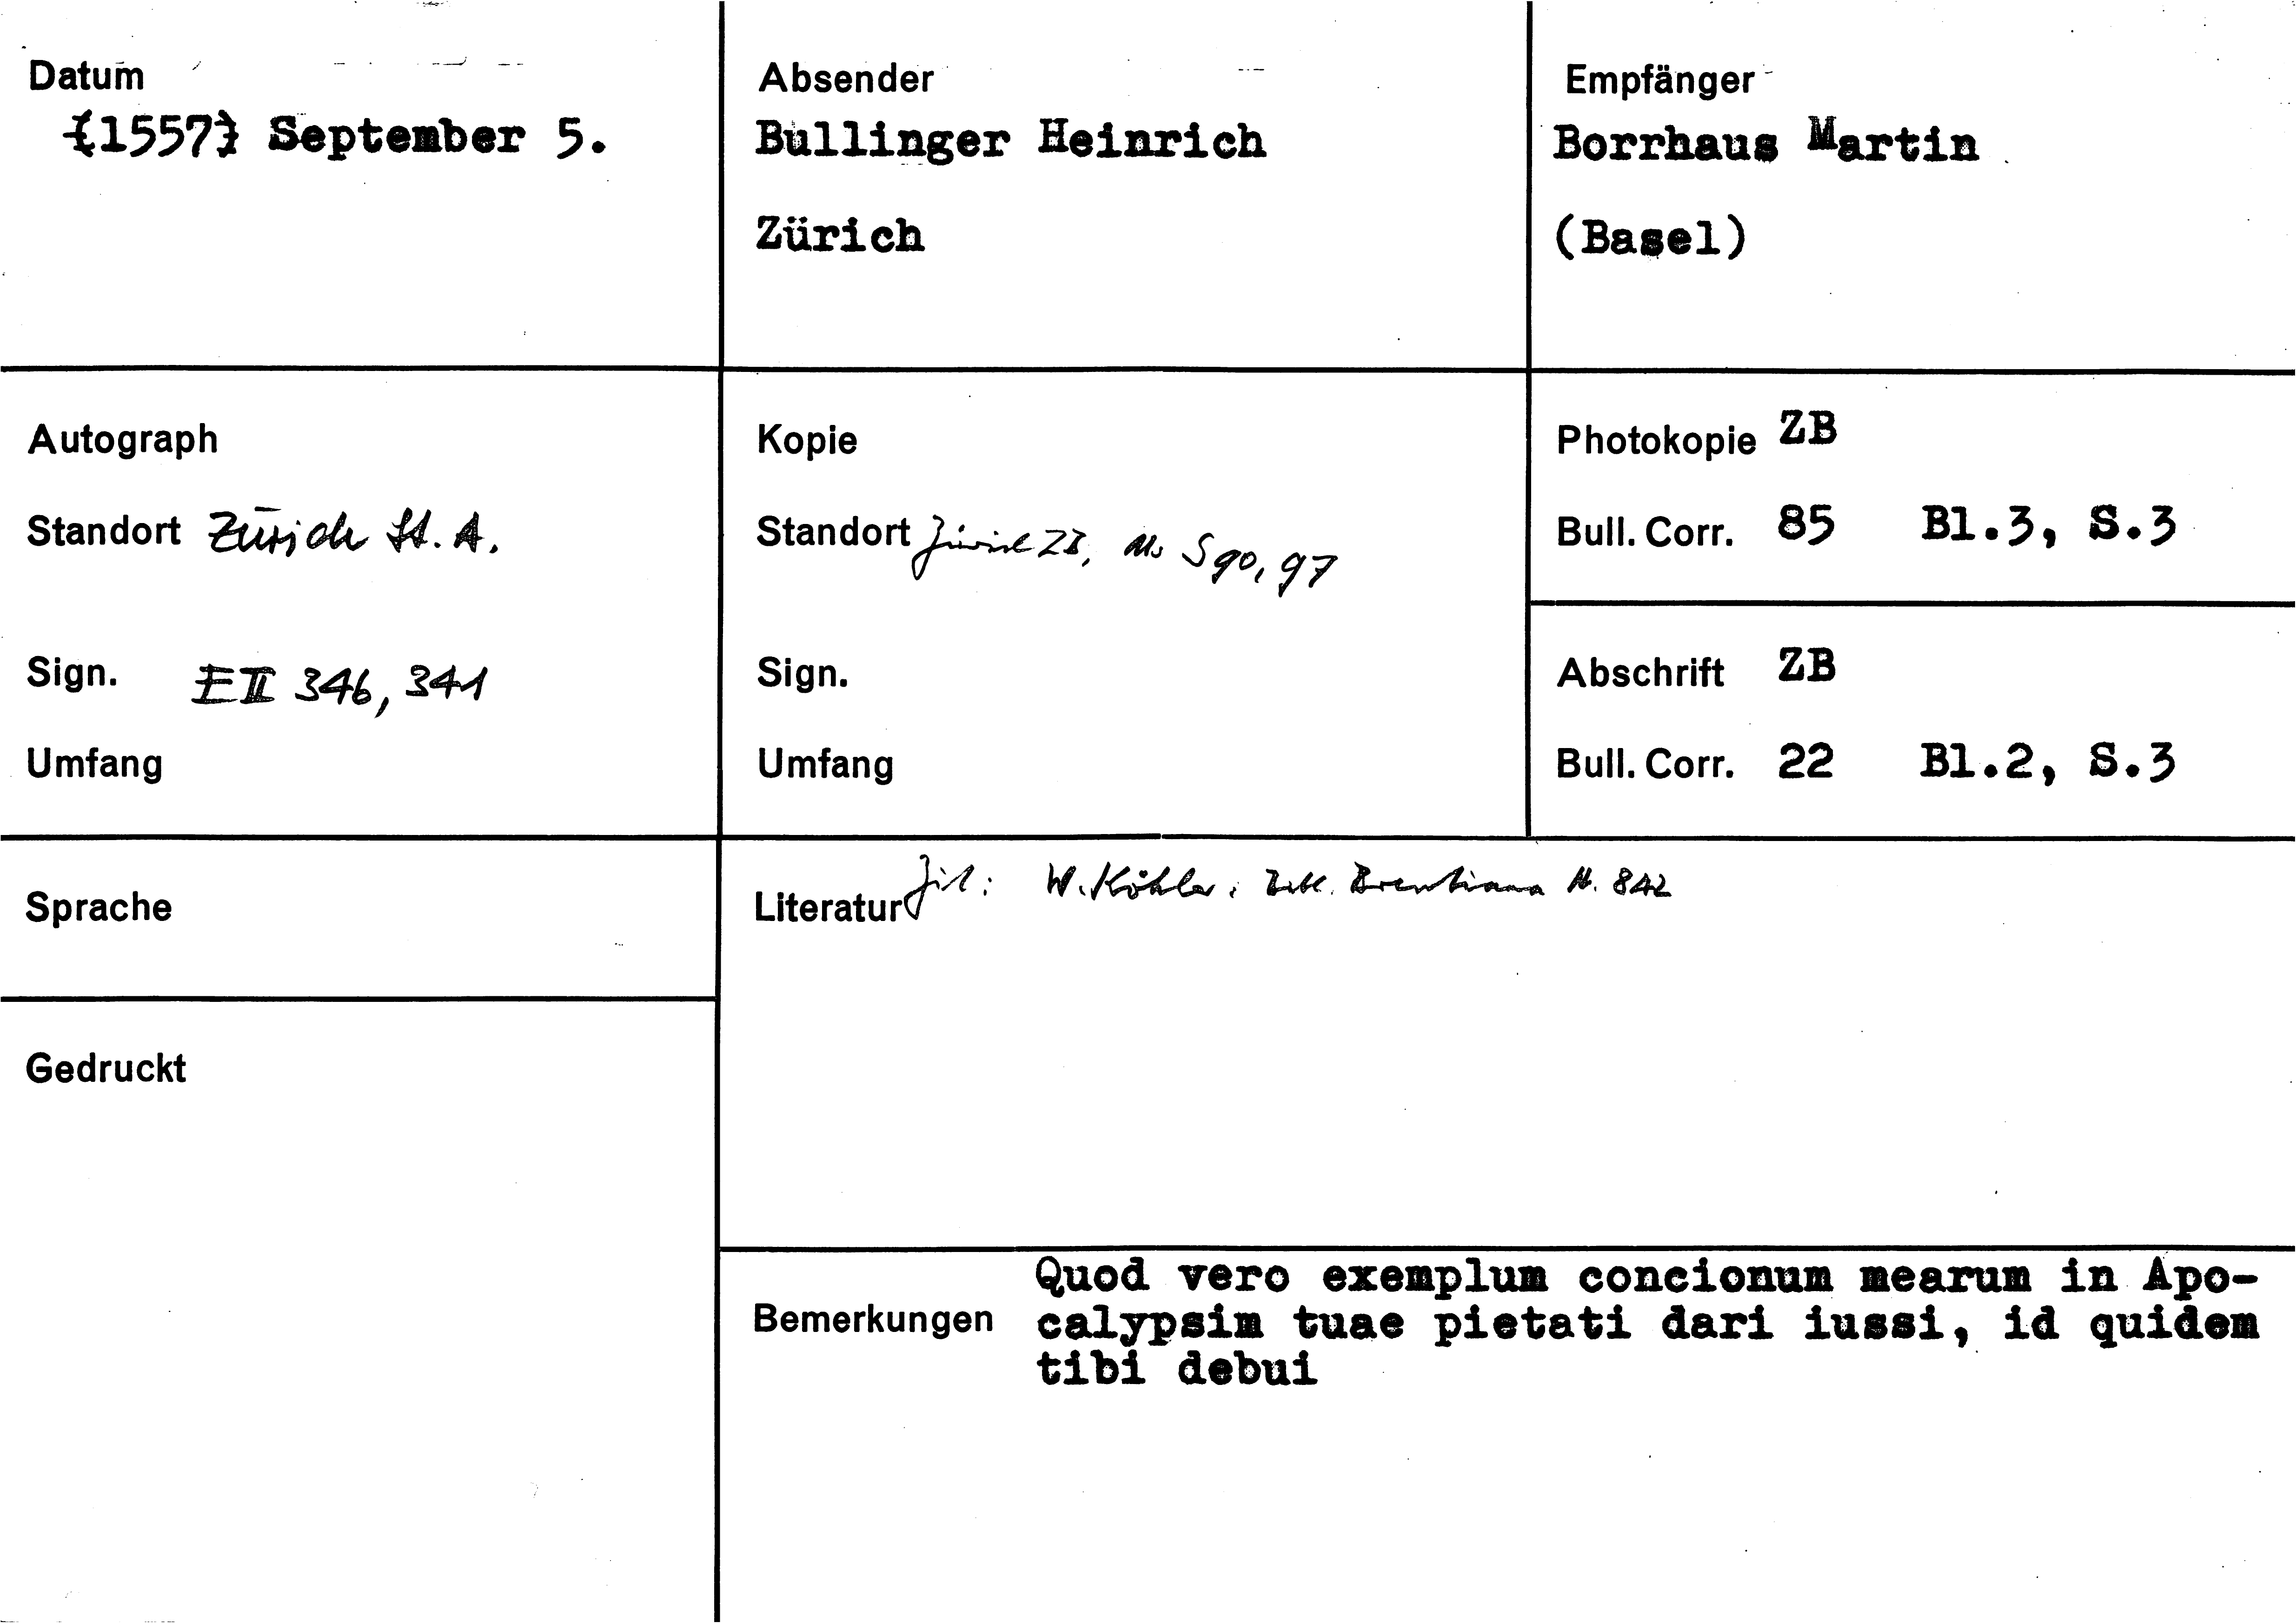 Datum
[1557] September 5.
Absender
Bullinger Heinrich
Zürich
Empfänger
Borrhaus Martin
(Basel)
Autograph
Standort Zürich St. A.
Sign. E II 346, 341
Umfang
Kopie
Standort Zürich ZB, Ms S 90, 97
Sign.
Umfang
Photokopie ZB
Bull. Corr. 85 Bl.3, S.3
Abschrift ZB
Bull. Corr. 22 Bl.2, S.3
Sprache
Gedruckt
Literatur Zit: W. Köhler, Bibl. Brentiana N. 842
Bemerkungen
Quod vero exemplum concionum mearum in Apo-
calypsim tuae pietati dari iussi, id quidem
tibi debui